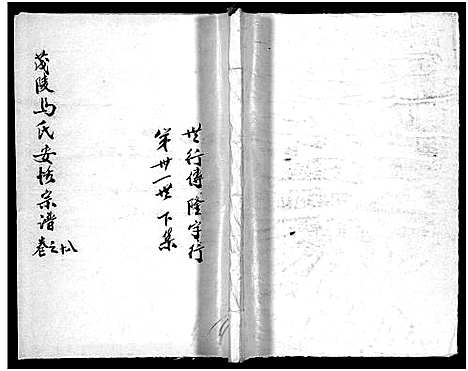 世行傳隆字行
第卅一世下集
茂陵馬氏安恬宗谱
卷之十八